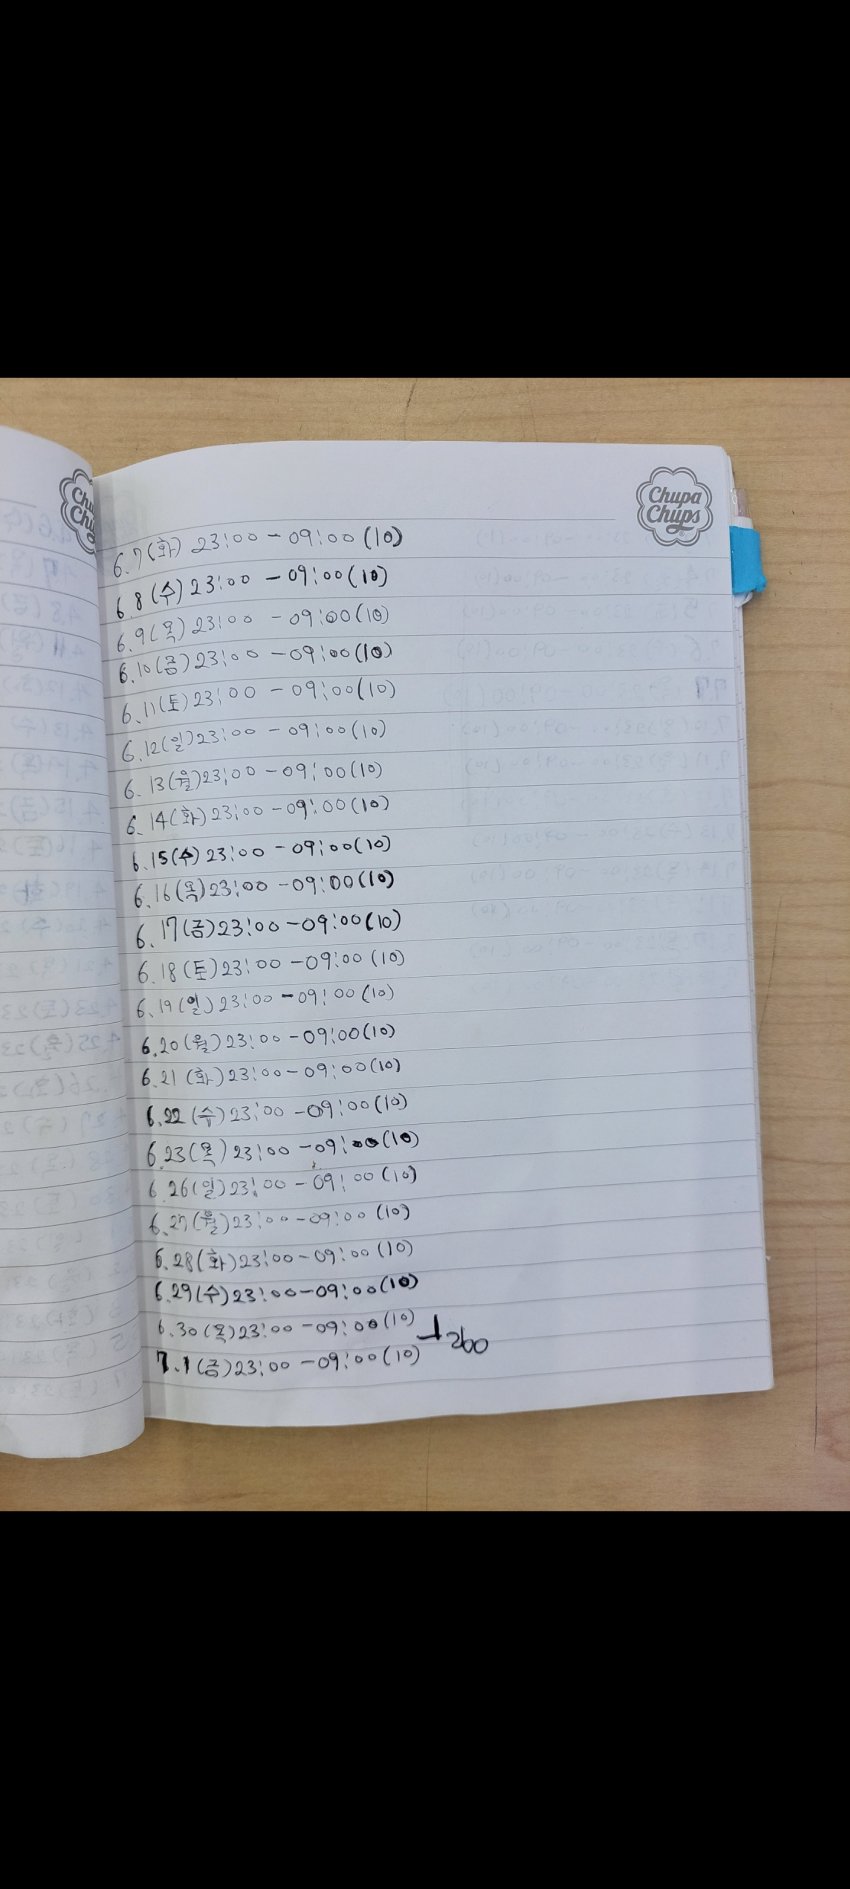 Chupa
Chups
6.7(화) 23:00 - 09:00 (10)
6.8(수) 23:00 - 09:00 (10)
6.9(목) 23:00 - 09:00 (10)
6.10(금) 23:00 - 09:00 (10)
6.11(토) 23:00 - 09:00 (10)
6.12(일) 23:00 - 09:00 (10)
6.13(월) 23:00 - 09:00 (10)
6.14(화) 23:00 - 09:00 (10)
6.15(수) 23:00 - 09:00 (10)
6.16(목) 23:00 - 09:00 (10)
6.17(금) 23:00 - 09:00 (10)
6.18(토) 23:00 - 09:00 (10)
6.19(일) 23:00 - 09:00 (10)
6.20(월) 23:00 - 09:00 (10)
6.21(화) 23:00 - 09:00 (10)
6.22(수) 23:00 - 09:00 (10)
6.23(목) 23:00 - 09:00 (10)
6.26(일) 23:00 - 09:00 (10)
6.27(월) 23:00 - 09:00 (10)
6.28(화) 23:00 - 09:00 (10)
6.29(수) 23:00 - 09:00 (10)
6.30(목) 23:00 - 09:00 (10)
260
7.1(금) 23:00 - 09:00 (10)